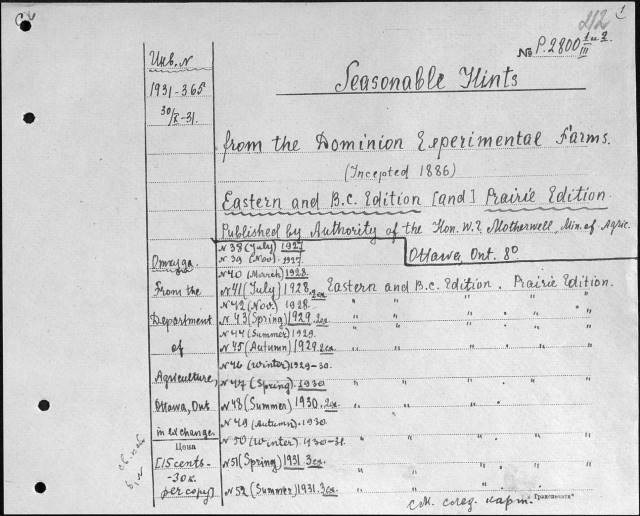 212
1
№ P.2800 1 и 2
III
Инв. N
1931-365
30/X-31.
Seasonable Hints
from the Dominion Experimental Farms.
(Incepted 1886)
Eastern and B.C. Edition [and] Prairie Edition
Published by Authority of the Hon. W.R. Motherwell, Min. of Agric.
Ottawa, Ont. 8°
Откуда.
From the
Department
of
Agriculture,
Ottawa, Ont
in exchange.
Цена
[15 cents-
-30к.
per copy]
N 38 (July) 1927
N 39 (Nov.) 1927.
N 40 (March) 1928.
N 41 (July) 1928. 2 ex. Eastern and B.C. Edition. Prairie Edition.
N 42 (Nov.) 1928. " " " " "
N 43 (Spring) 1929. 2 ex. " " " " "
N 44 (Summer) 1929.
N 45 (Autumn) 1929. 2 ex. " " " " "
N 46 (Winter) 1929-30.
N 47 (Spring). 1930 " " " " "
N 48 (Summer) 1930. 2 ex. " " " " "
N 49 (Autumn). 1930.
N 50 (Winter). 1930-31. " " " " "
N 51 (Spring) 1931. 3 ex. " " " " "
N 52 (Summer) 1931. 3 ex. " " " "
см. след. карт.
„Транспечати"